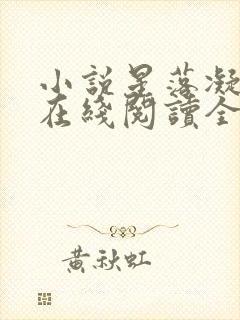 小說星落凝
在綫閱讀全
黃秋虹